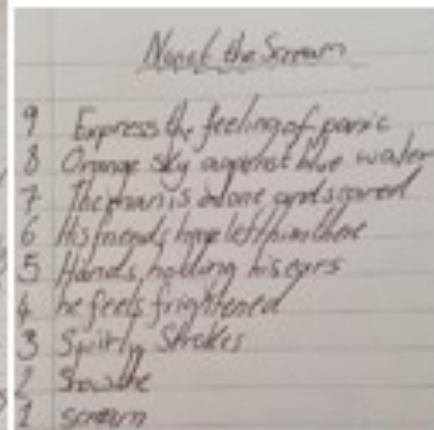 Nonet the Scream
9 Express the feeling of panic
8 Orange sky against blue water
7 The man is alone and scared
6 His friends have left him there
5 Hands holding his ears
4 he feels frightened
3 Swirly Strokes
2 Show the
1 scream